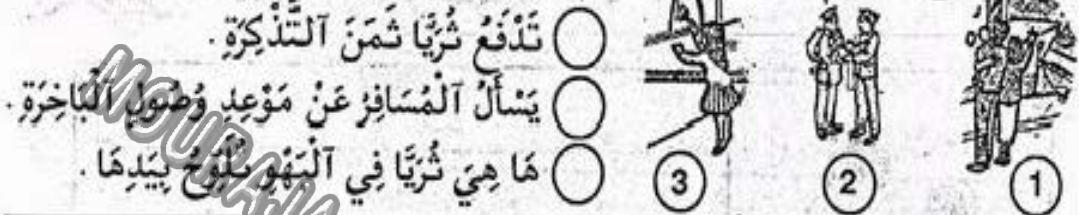 تَدْفَعُ ثُرَيَّا ثَمَنَ ٱلتَّذْكِرَةِ.
يَسْأَلُ ٱلْمُسَافِرُ عَنْ مَوْعِدِ وُصُولِ ٱلْبَاخِرَةِ.
هَا هِيَ ثُرَيَّا فِي ٱلْبَهْوِ تُلَوِّحُ بِيَدِهَا.
1 2 3